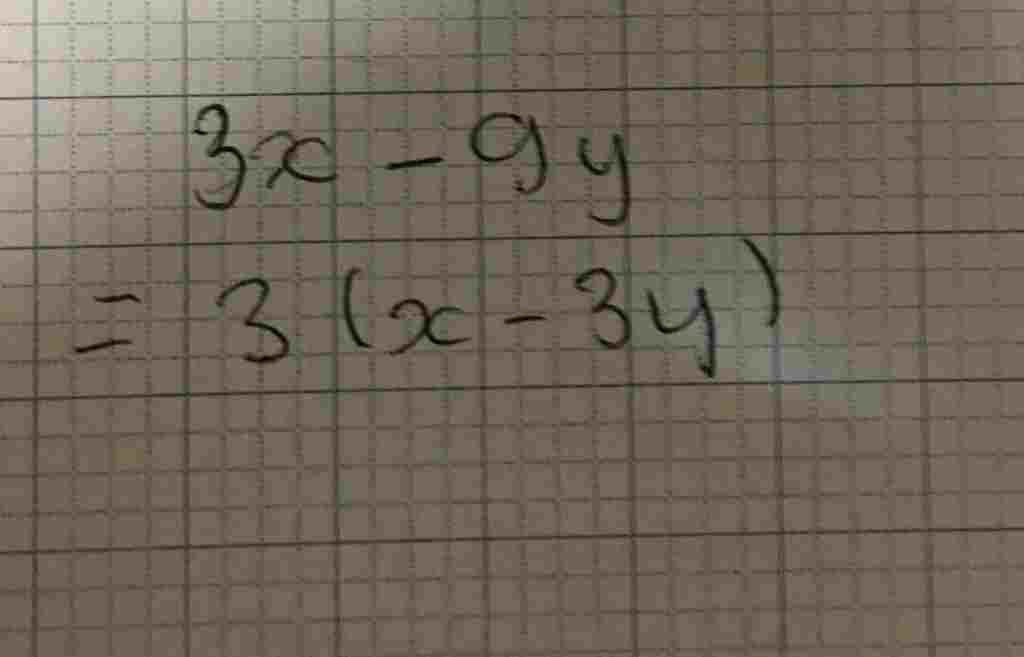 3x - 9y
= 3 (x - 3y)